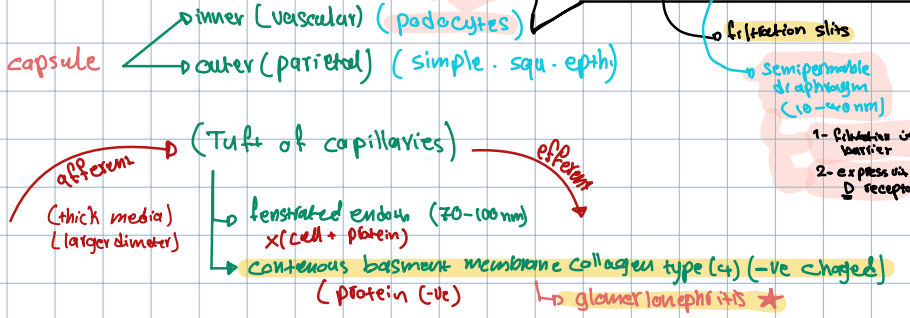 inner (vascular) (podocytes)
capsule
outer (parietal) (simple . squ . epth.)
filtration slits
semipermable
diaphragm
(10-40nm)
1- filtration
barrier
2- express
D recepto
(Tuft of capillaries)
afferent
efferent
(thick media)
(larger dimeter)
fenstrated endoth (70-100nm)
x(cell + protein)
contenous basment membrane collagen type (4) (-ve charged)
(protein (-ve)
glomerlonephritis ★